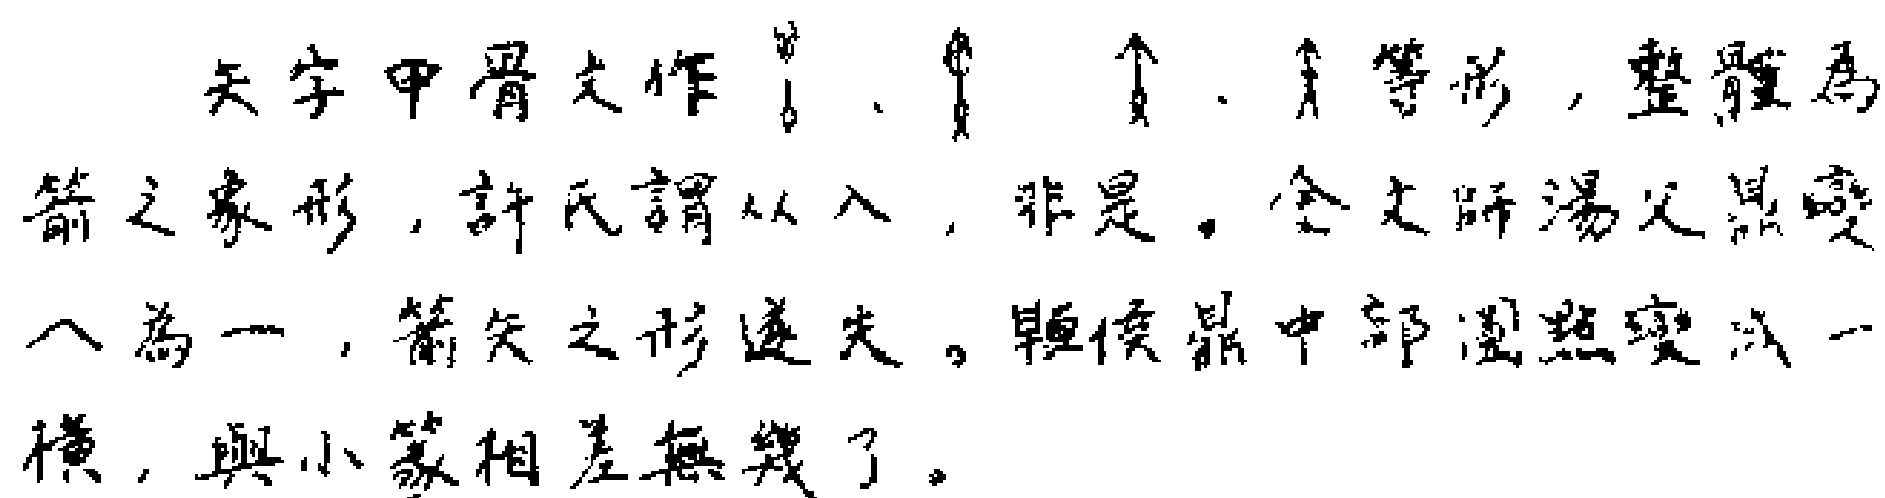 矢字甲骨文作、、等形，整體為
箭之象形，許氏謂从入，非是。金文師湯父鼎變
入為一，箭矢之形遂失。侯鼎中部圓點變成一
橫，與小篆相差無幾了。